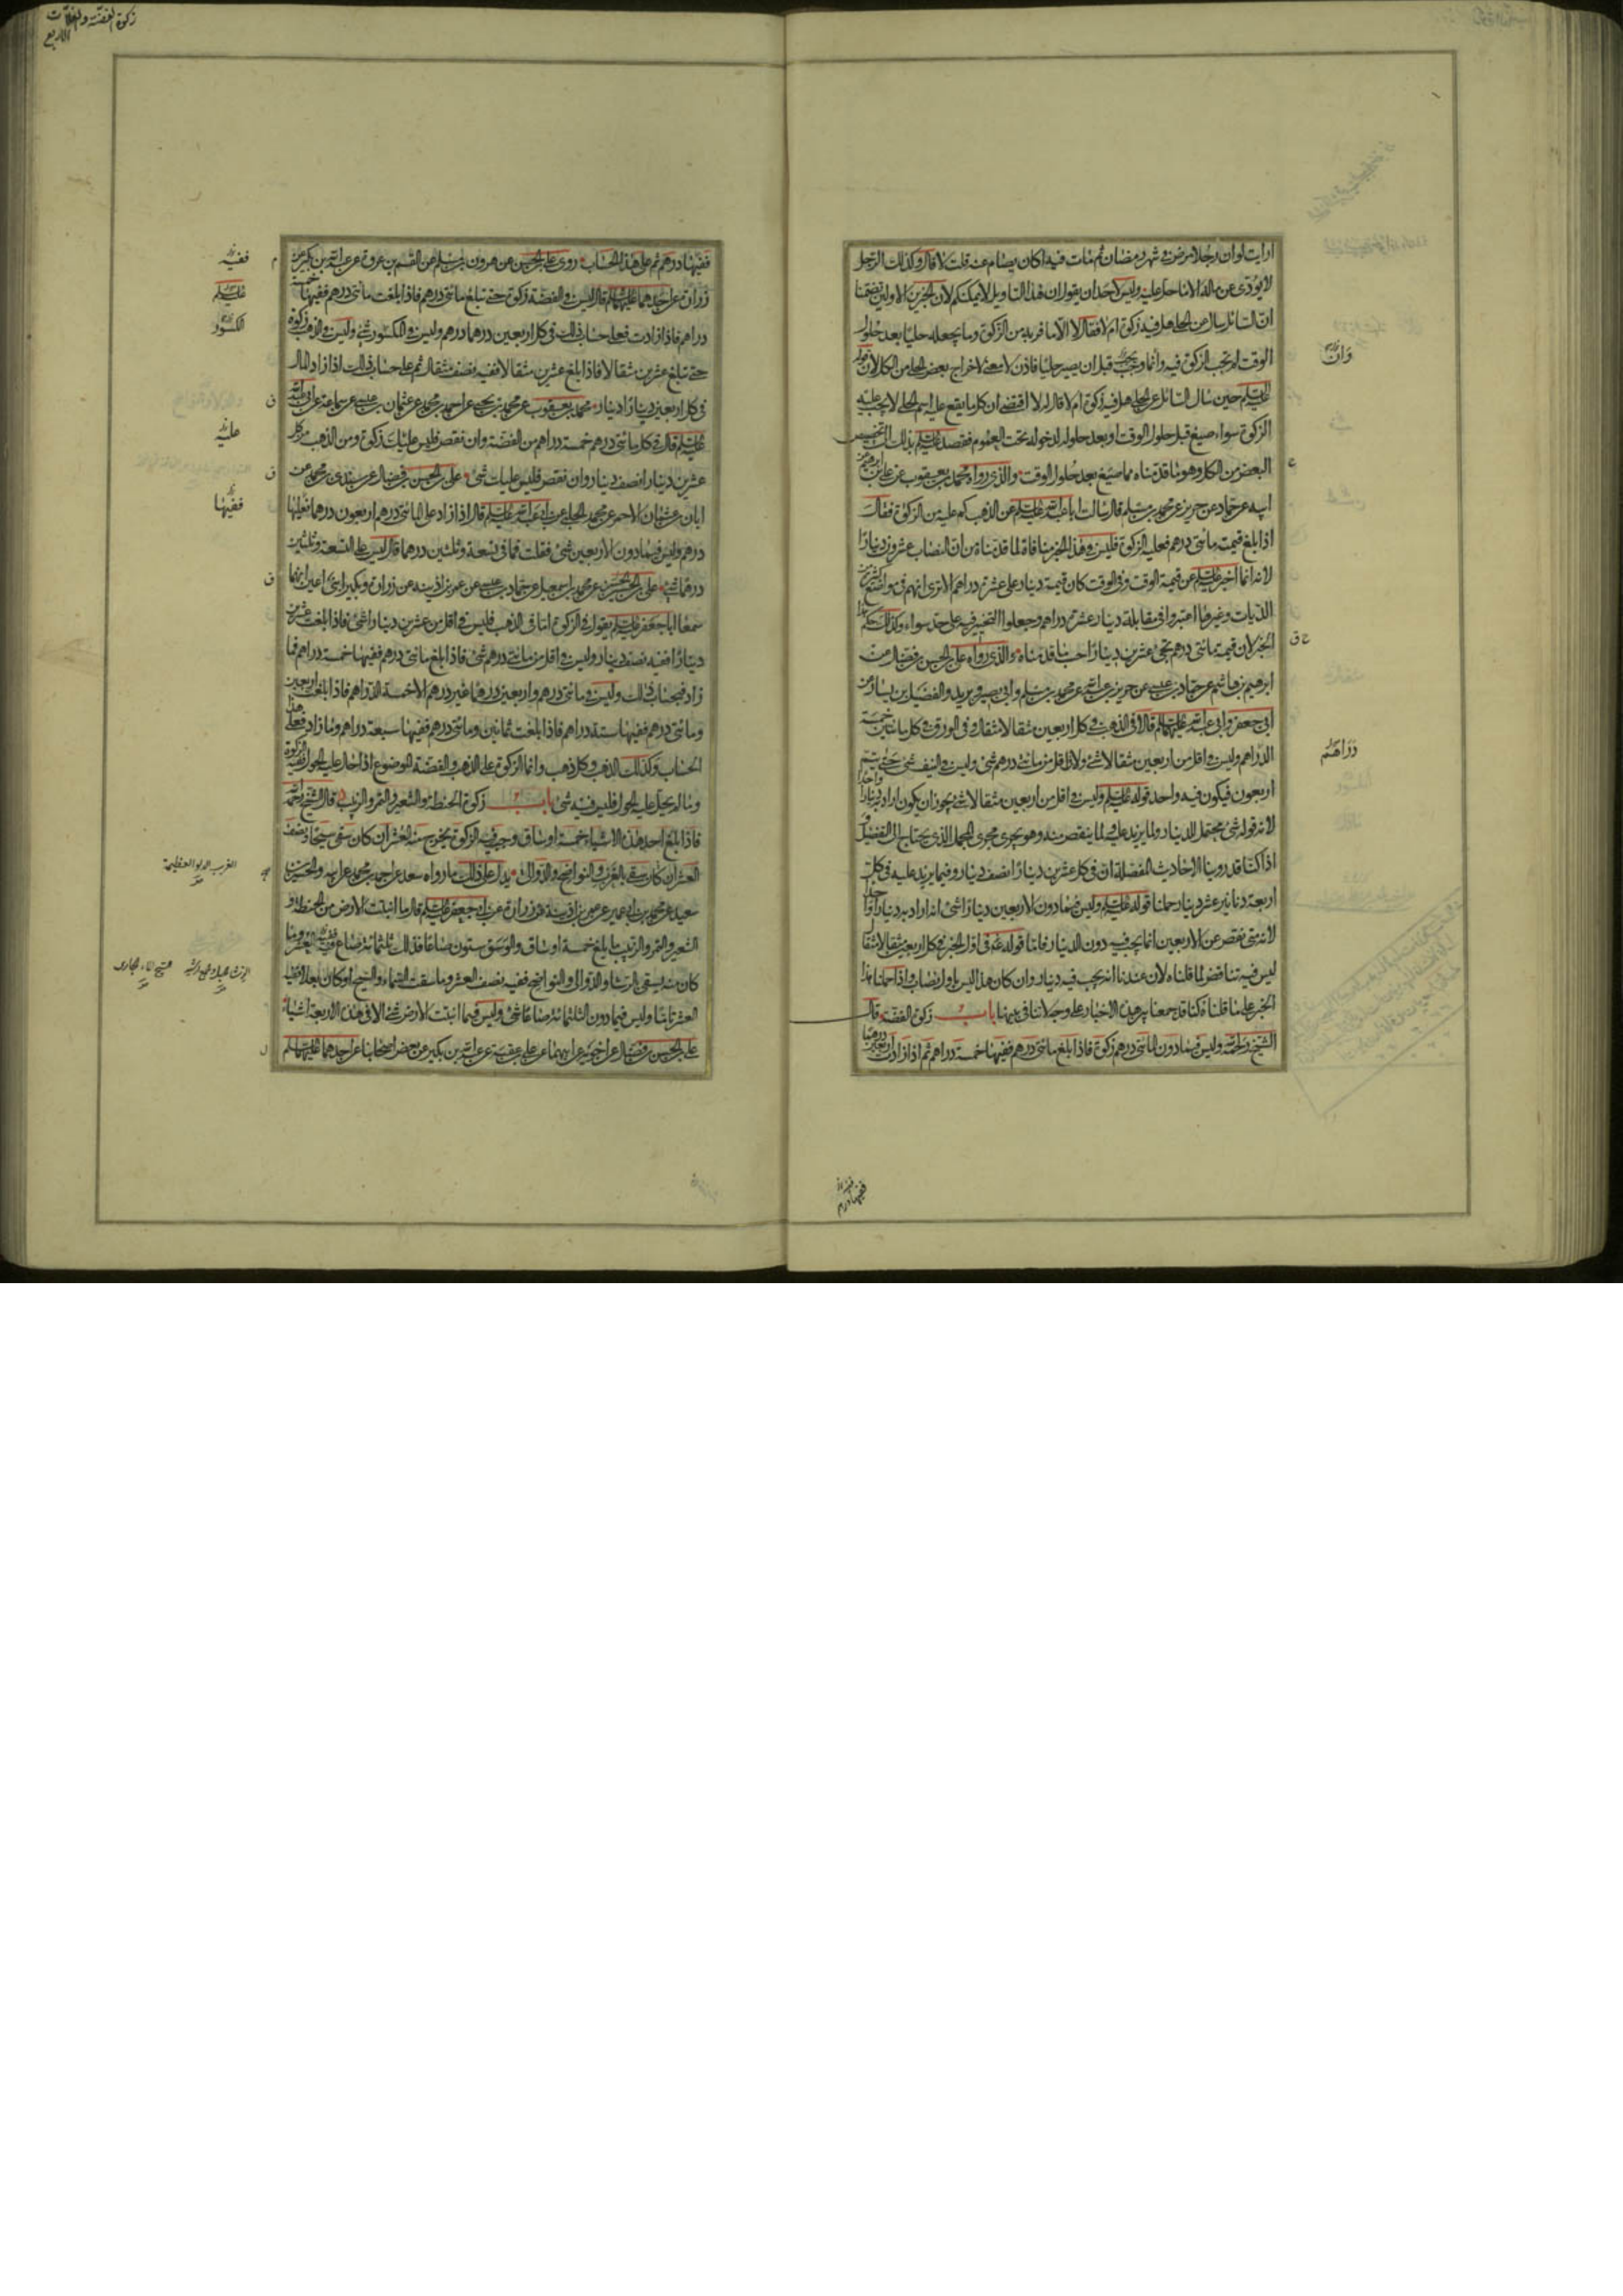 ارايت لو ان رجلا مرض فى شهر رمضان ثم مات فيه اكان يصام عنه قلت لا قال وكذلك الرجل
لا يؤدى عن ماله الا ما حل عليه وليس لاحد ان يقول ان هذا التاويل لا يمكنكم لان الخبرين الاولين تضمنا
ان السائل سال عن الحلى هل فيه زكوة ام لا فقال لا الا ما فر به من الزكوة وما يجعله حليا بعد حلول
الوقت لم تجب الزكوة فيه وانما وجبت قبل ان يصير حليا فاذن لا معنى لاخراج بعض الحلى من الكل لان قوله
عليه السلم حين سال السائل عن الحلى هل فيه زكوة ام لا قال له لا اقتضى ان كل ما يقع عليه اسم الحلى لا يجب عليه
الزكوة سواء صيغ قبل حلول الوقت او بعد حلوله لدخوله تحت العموم فقصد عليه السلم بذلك الى تخصيص
البعض من الكل وهو ما قدمناه مما صيغ بعد حلول الوقت والذى رواه محمد بن يعقوب عن على بن ابرهيم عن
ابيه عن حماد عن حريز عن محمد بن مسلم قال سالت ابا عبد الله عليه السلم عن الذهب كم عليه من الزكوة فقال
اذا بلغ قيمته مائتى درهم فعليه الزكوة فليس فى هذا الخبر منافاة لما قدمناه من ان النصاب عشرون دينارا
لانه انما اخبر عليه السلم عن قيمة الوقت وفى الوقت كان قيمة دينار على عشرة دراهم الا ترى انهم فى مواضع كثيرة من
الديات وغيرها اعتبروا فى مقابلة دينار عشرة دراهم وجعلوا التخيير فيه على حد سواء وكذلك حكم هذا
الخبر لان قيمة مائتى درهم تجئ عشرين دينارا حسبما قدمناه والذى رواه على بن الحسن بن فضال عن
ابرهيم بن هاشم عن حماد بن عيسى عن حريز بن عبد الله عن محمد بن مسلم وابى بصير وبريد والفضيل بن يسار عن
ابى جعفر وابى عبد الله عليهما السلم قالا فى الذهب فى كل اربعين مثقالا مثقال وفى الورق فى كل مائتين خمسة
الدراهم وليس فى اقل من اربعين مثقالا شئ ولا فى اقل من مائتى درهم شئ وليس فى النيف شئ حتى يتم
اربعون فيكون فيه واحد قوله عليه السلم وليس فى اقل من اربعين مثقالا شئ يجوز ان يكون اراد به دينارا واحدا
لان قوله شئ محتمل للدينار ولما يزيد عليه ولما ينقص منه وهو يجرى مجرى المجمل الذى يحتاج الى التفصيل و
اذا كنا قد روينا الاحاديث المفصلة ان فى كل عشرين دينارا نصف دينار وفيما يزيد عليه فى كل
اربعة دنانير عشر دينار حملنا قوله عليه السلم وليس فيما دون الاربعين دينارا شئ انه اراد به دينارا واحدا
لانه متى نقص عن الاربعين انما يجب فيه دون الدينار فاما قوله فى اول الخبر فى كل اربعين مثقالا مثقال
ليس فيه تناقض لما قلناه لان عندنا انه يجب فيه دينار وان كان هذا ليس باول نصاب واذا حملنا هذا
الخبر على ما قلناه كنا قد جمعنا بين هذه الاخبار على وجه لا تنافى بينها باب زكوة الفضة قال
الشيخ رحمه الله وليس فيما دون المائتى درهم زكوة فاذا بلغ مائتى درهم ففيها خمسة دراهم ثم اذا زادت اربعين درهما
وان
دراهم
ففيها درهم
زكوة الفضة والغلات
الاربع
ففيها درهم ثم على هذا الحساب روى على بن الحسن عن هرون بن مسلم عن القسم بن عروة عن عبد الله بن بكير عن
زرارة عن احدهما عليهما السلم قال ليس فى الفضة زكوة حتى تبلغ مائتى درهم فاذا بلغت مائتى درهم ففيها خمسة
دراهم فاذا زادت فعلى حساب ذلك فى كل اربعين درهما درهم وليس فى الكسور شئ وليس فى الذهب زكوة
حتى تبلغ عشرين مثقالا فاذا بلغ عشرين مثقالا ففيه نصف مثقال ثم على حساب ذلك اذا زاد المال
فى كل اربعين دينارا دينار محمد بن يعقوب عن محمد بن يحيى عن احمد بن محمد عن عثمان بن عيسى عن سماعة عن ابى عبد الله
عليه السلم قال فى كل مائتى درهم خمسة دراهم من الفضة وان نقص فليس عليك زكوة ومن الذهب من كل
عشرين دينارا نصف دينار وان نقص فليس عليك شئ على بن الحسن بن فضال عن سندى بن محمد عن
ابان بن عثمان الاحمر عن محمد الحلبى عن ابى عبد الله عليه السلم قال اذا زاد على المائتى درهم اربعون درهما ففيها
درهم وليس فيما دون الاربعين شئ فقلت فما فى تسعة وثلثين درهما قال ليس على التسعة وثلثين
درهما شئ على بن الحسن عن محمد بن اسمعيل عن حماد بن عيسى عن عمر بن اذينة عن زرارة وبكير ابنى اعين انهما
سمعا ابا جعفر عليه السلم يقول فى الزكوة اما فى الذهب فليس فى اقل من عشرين دينارا شئ فاذا بلغت عشرين
دينارا ففيه نصف دينار وليس فى اقل من مائتى درهم شئ فاذا بلغ مائتى درهم ففيها خمسة دراهم فما
زاد فبحساب ذلك وليس فى مائتى درهم واربعين درهما غير درهم الا خمسة الدراهم فاذا بلغت اربعين
ومائتى درهم ففيها ستة دراهم فاذا بلغت ثمانين ومائتى درهم ففيها سبعة دراهم وما زاد فعلى هذا
الحساب وكذلك الذهب وكل ذهب وانما الزكوة على الذهب والفضة الموضوع اذا حال عليه الحول ففيه الزكوة
وما لم يحل عليه الحول فليس فيه شئ باب زكوة الحنطة والشعير والتمر والزبيب قال الشيخ رحمه الله
فاذا بلغ احد هذه الاشياء خمسة اوساق وجب فيه الزكوة يخرج منه العشر ان كان سقى سيحا ونصف
العشر ان كان سقى بالغرب والنواضح والدوالى يدل على ذلك ما رواه سعد عن احمد بن محمد عن ابيه والحسين بن
سعيد عن محمد بن ابى عمير عن عمر بن اذينة عن زرارة عن ابى جعفر عليه السلم قال ما انبتت الارض من الحنطة و
الشعير والتمر والزبيب ما بلغ خمسة اوساق والوسق ستون صاعا فذلك ثلثمائة صاع ففيه العشر وما
كان منه يسقى بالرشا والدوالى والنواضح ففيه نصف العشر وما سقت السماء والسيح او كان بعلا ففيه
العشر تاما وليس فيما دون الثلثمائة صاعا شئ وليس فيما انبتت الارض شئ الا فى هذه الاربعة اشياء
على بن الحسن بن فضال عن اخويه عن ابيهما عن على بن عقبة عن عبد الله بن بكير عن بعض اصحابنا عن احدهما عليهما السلم
ففيه
عليه السلم
الكسور
عليه
ففيها
الغرب الدلو العظيمة
السيح الماء الجارى